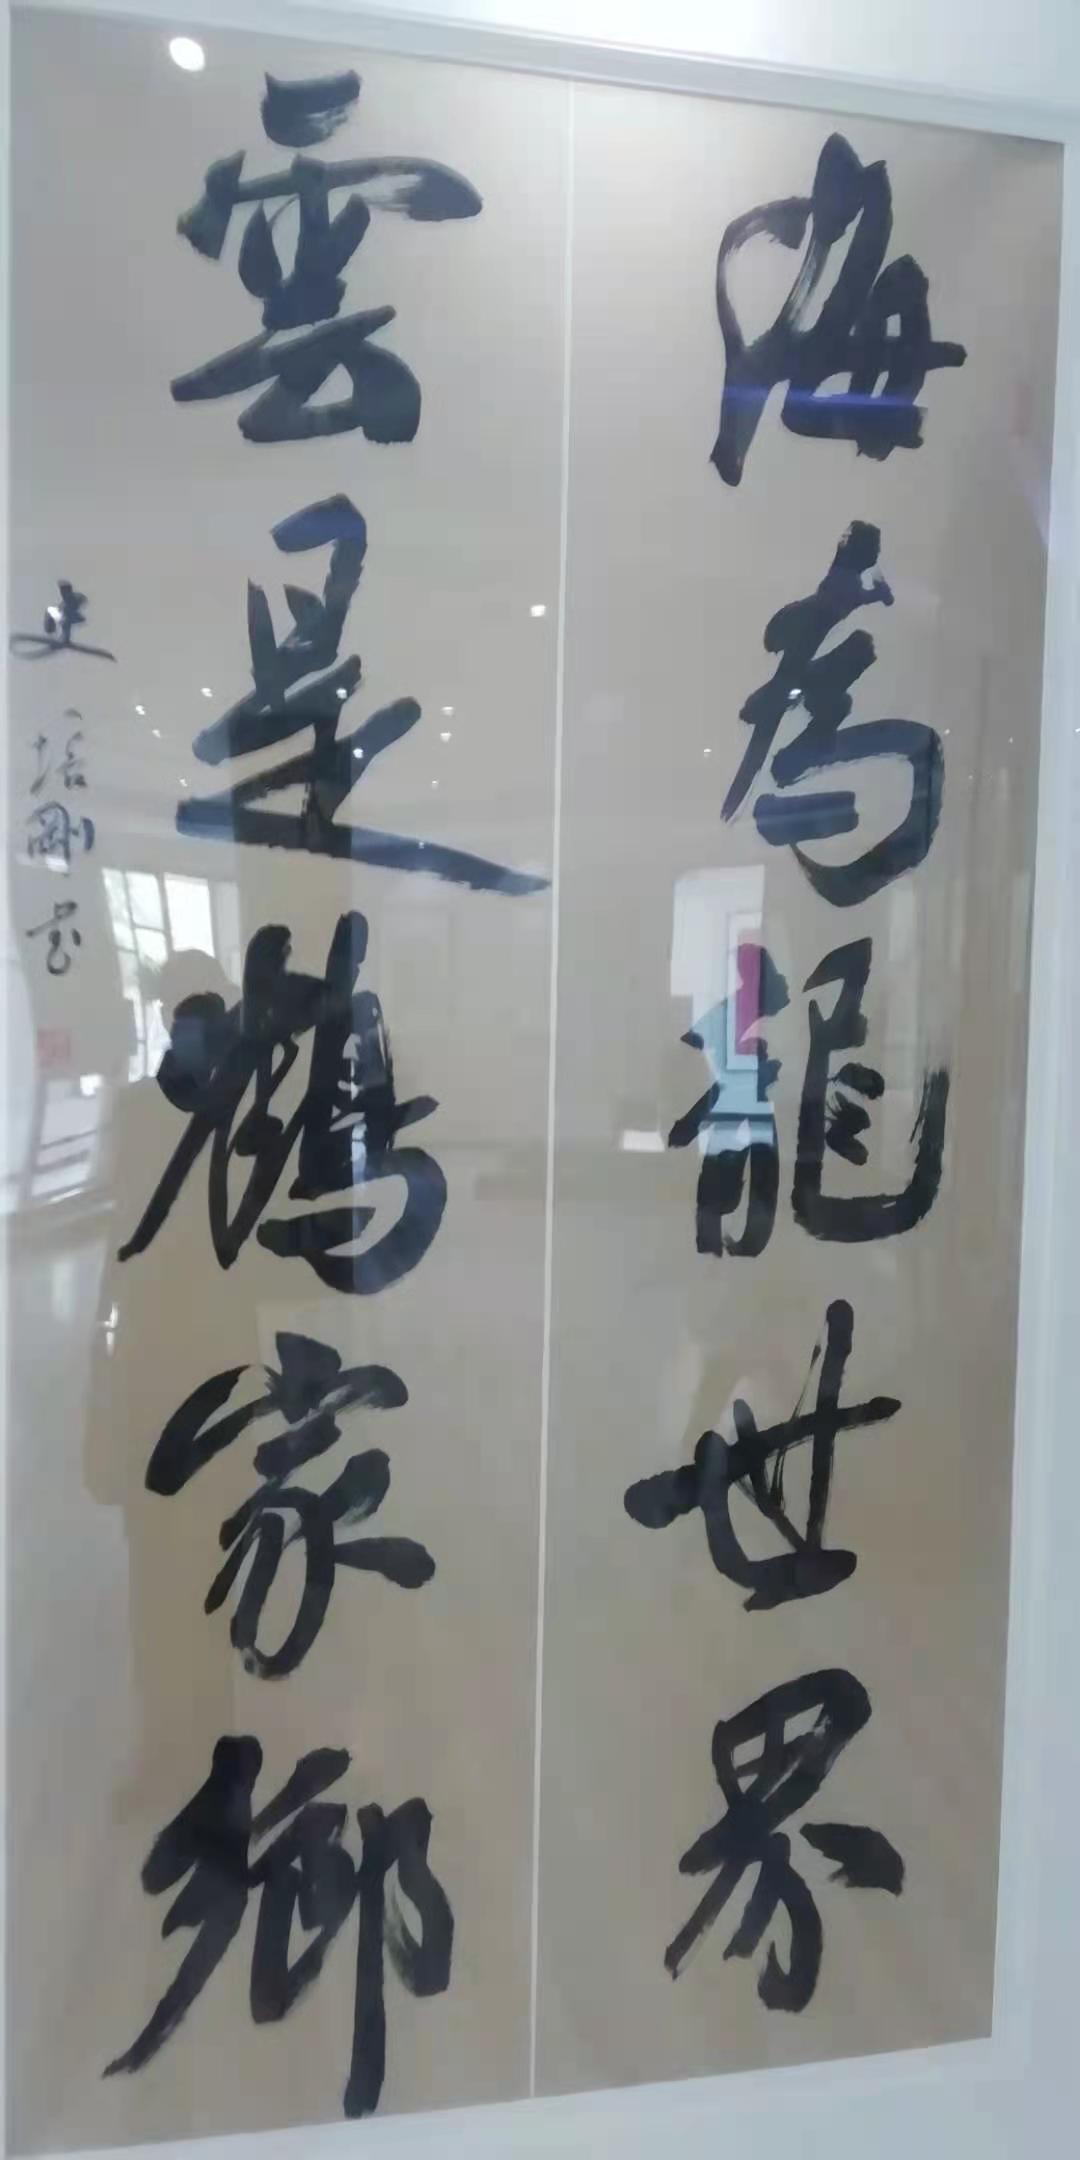 海為龍世界
雲是鶴家鄉
史培剛書